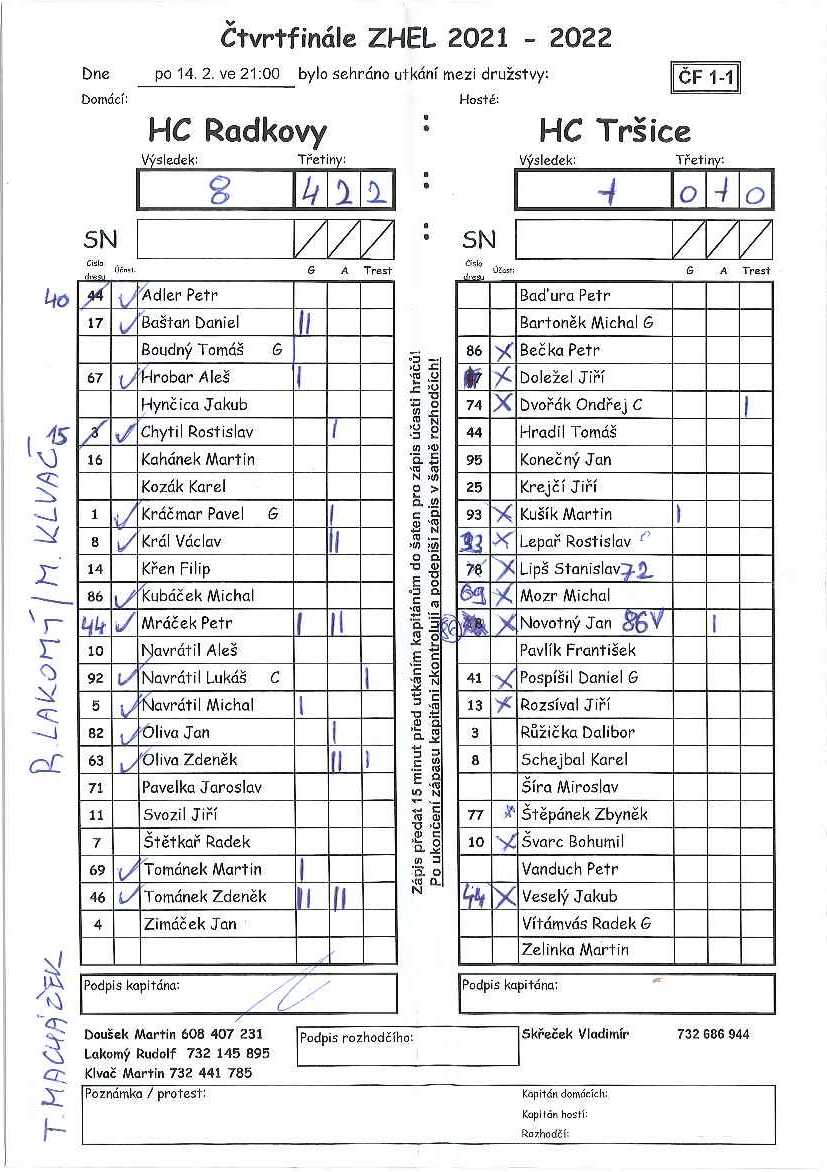 Čtvrtfinále ZHEL 2021 - 2022
Dne po 14. 2. ve 21:00 bylo sehráno utkání mezi družstvy: ČF 1-1
Domácí: Hosté:
HC Radkovy : HC Tršice
Výsledek: Třetiny: Výsledek: Třetiny:
8 4 2 2 : 1 0 1 0
SN : SN
Číslo dresu Účast: G A Trest Číslo dresu Účast: G A Trest
40 44 ✓ Adler Petr
17 ✓ Baštan Daniel II
Boudný Tomáš G
67 ✓ Hrobar Aleš I
Hynčica Jakub
15 3 ✓ Chytil Rostislav I
16 Kahánek Martin
Kozák Karel
1 ✓ Kráčmar Pavel G I
8 ✓ Král Václav II
14 Křen Filip
86 ✓ Kubáček Michal
44 ✓ Mráček Petr I II
10 Navrátil Aleš
92 ✓ Navrátil Lukáš C I
5 ✓ Navrátil Michal I
82 ✓ Oliva Jan I
63 ✓ Oliva Zdeněk II I
71 Pavelka Jaroslav
11 Svozil Jiří
7 Štětkař Radek
69 ✓ Tománek Martin I
46 ✓ Tománek Zdeněk II II
4 Zimáček Jan
Zápis předat 15 minut před utkáním kapitánům do šaten pro zápis účasti hráčů!
Po ukončení zápasu kapitáni zkontrolují a podepíší zápis v šatně rozhodčích!
Baďura Petr
Bartoněk Michal G
86 X Bečka Petr
X Doležel Jiří
74 X Dvořák Ondřej C I
44 Hradil Tomáš
95 Konečný Jan
25 Krejčí Jiří
93 X Kušík Martin I
33 X Lepař Rostislav
78 X Lipš Stanislav 72
69 X Mozr Michal
86 X Novotný Jan 86V I
Pavlík František
41 X Pospíšil Daniel G
13 X Rozsíval Jiří
3 Růžička Dalibor
8 Schejbal Karel
Šíra Miroslav
77 X Štěpánek Zbyněk
10 X Švarc Bohumil
Vanduch Petr
44 X Veselý Jakub
Vítámvás Radek G
Zelinka Martin
R. LAKOMÝ / M. KLVAČ
T. MACHÁČEK
Podpis kapitána: Podpis kapitána:
Doušek Martin 608 407 231 Podpis rozhodčího: Skřeček Vladimír 732 686 944
Lakomý Rudolf 732 145 895
Klvač Martin 732 441 785
Poznámka / protest: Kapitán domácích:
Kapitán hostí:
Rozhodčí: